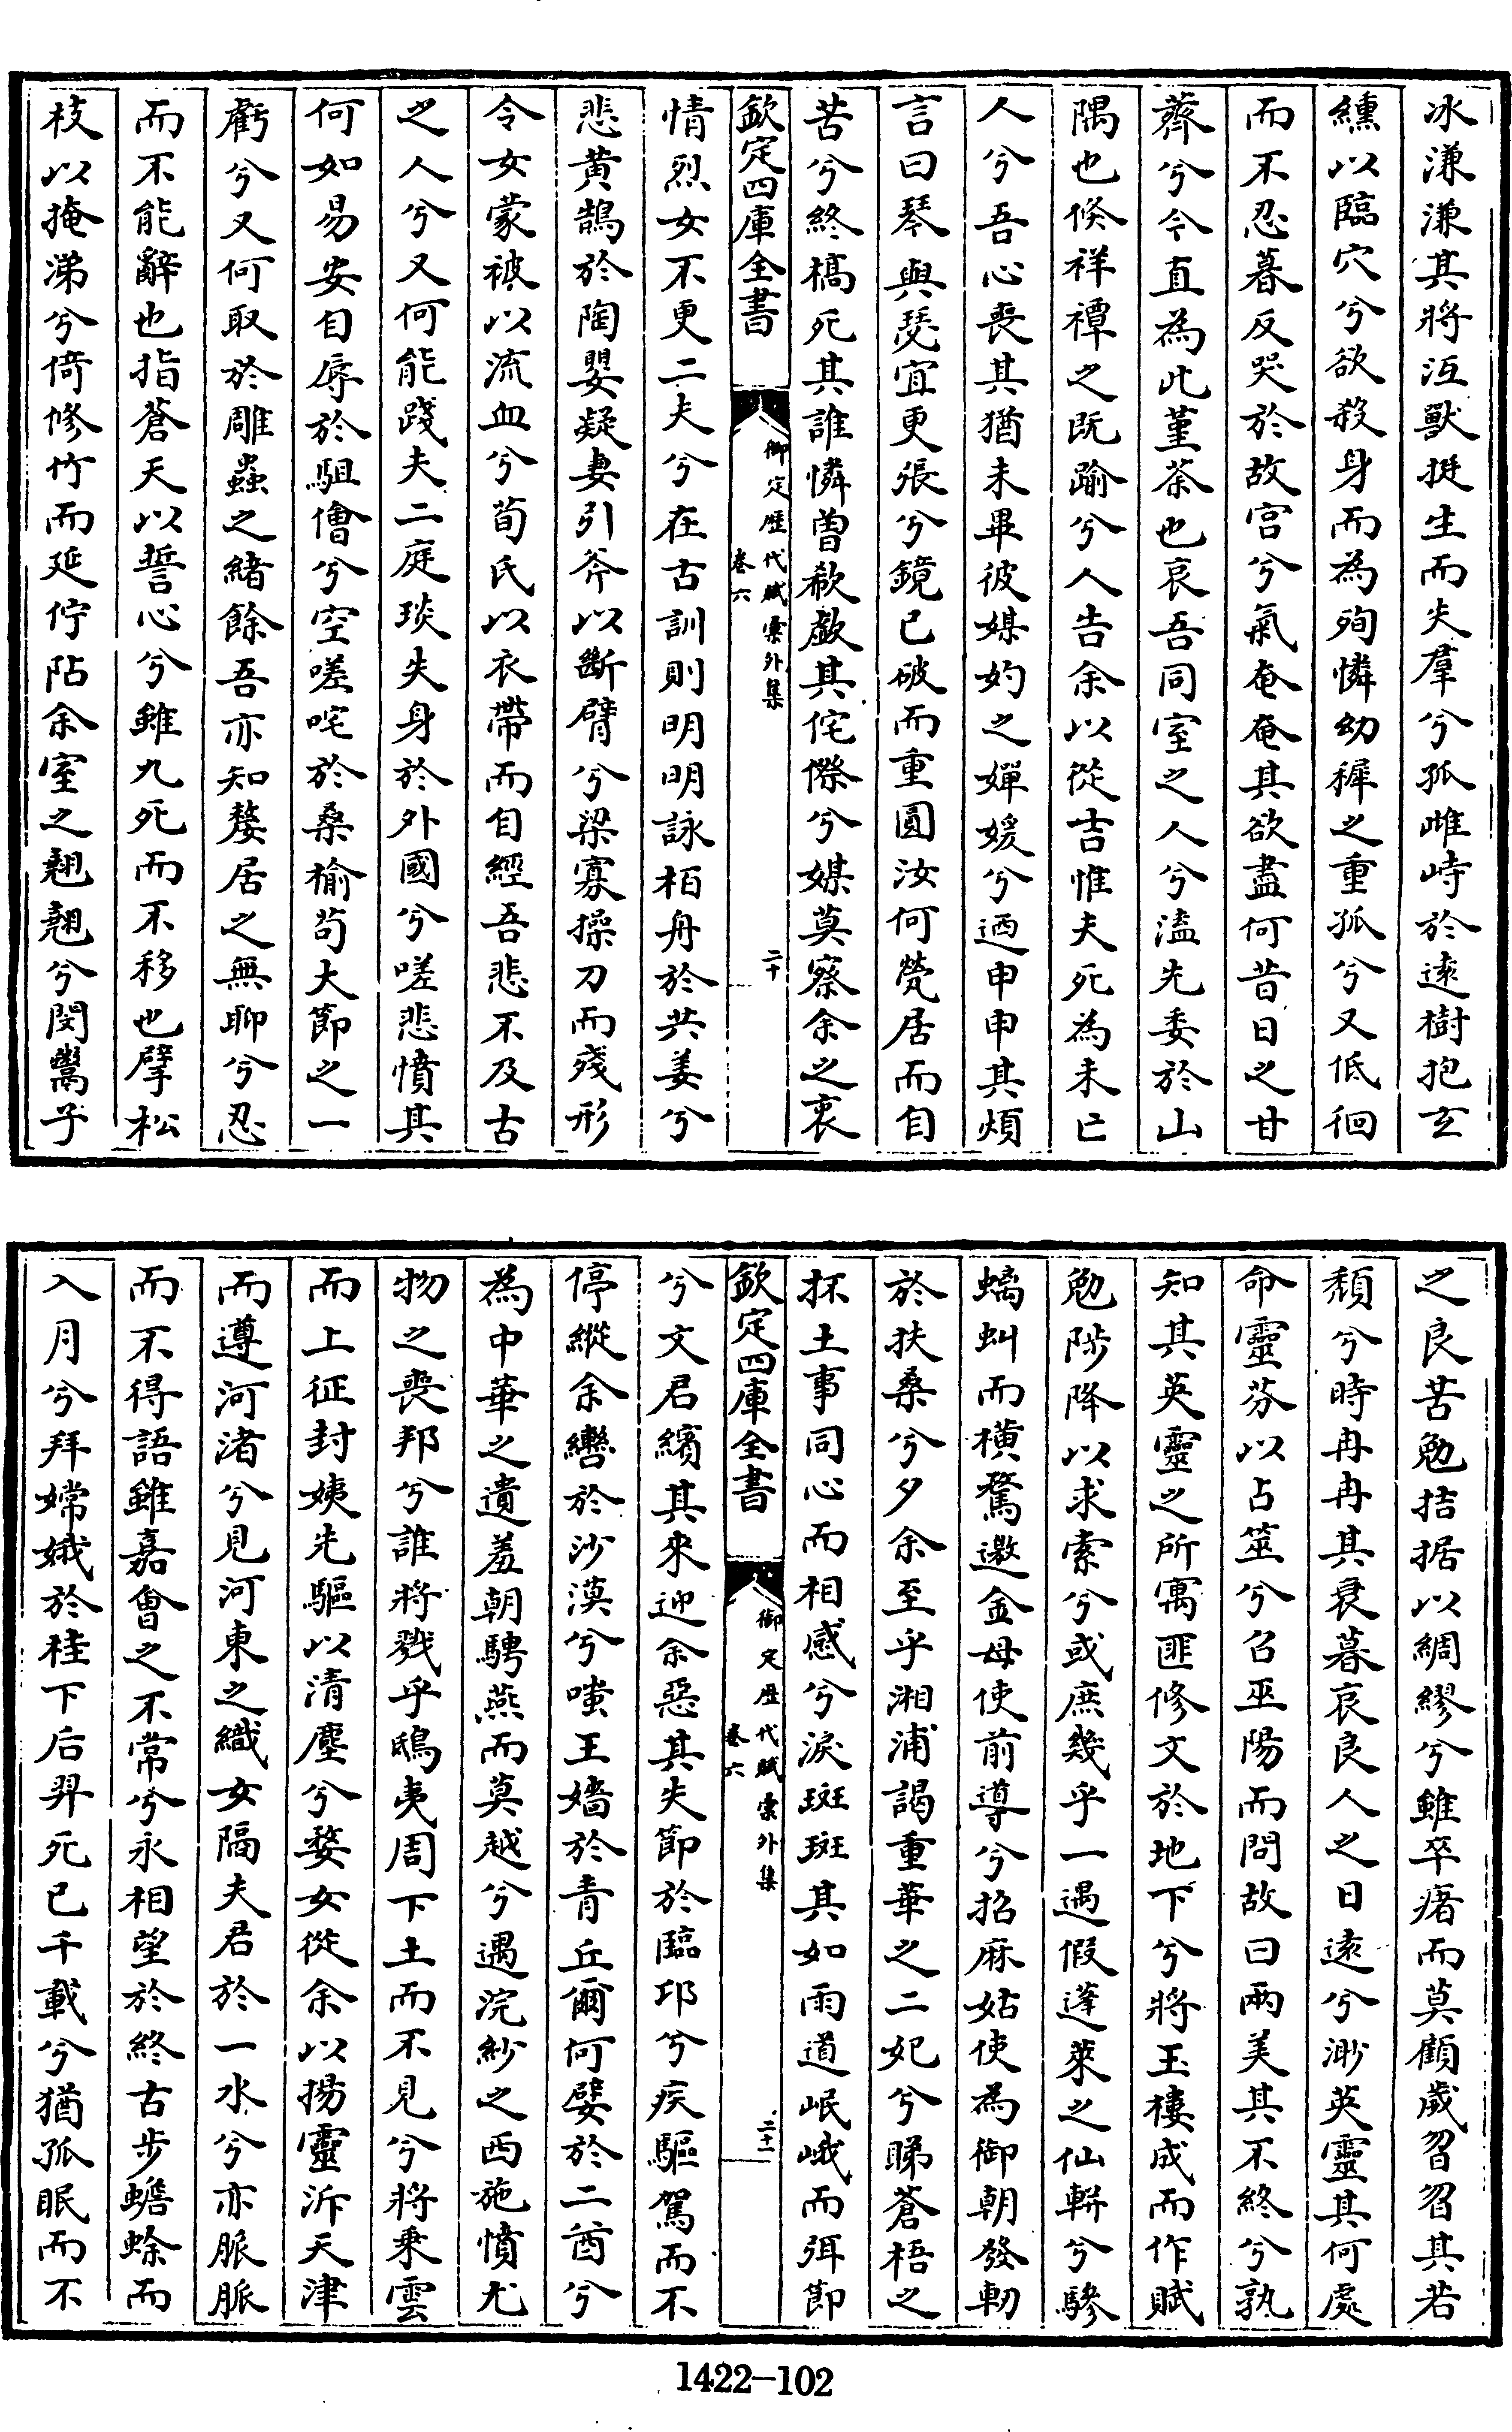 冰溓溓其將沍獸挺生而失羣兮孤雌峙於遠樹抱玄
纁以臨穴兮欲殺身而為殉憐幼穉之重孤兮又低徊
而不忍暮反哭於故宫兮氣奄奄其欲盡何昔日之甘
薺兮今直為此堇荼也哀吾同室之人兮溘先委於山
隅也倏祥禫之既踰兮人告余以從吉惟夫死為未亡
人兮吾心喪其猶未畢彼媒妁之嬋媛兮迺申申其煩
言曰琴與瑟宜更張兮鏡已破而重圓汝何煢居而自
苦兮終槁死其誰憐曾欷歔其侘傺兮媒莫察余之衷
欽定四庫全書
御定歷代賦彙外集
卷六
二十
情烈女不更二夫兮在古訓則明明詠栢舟於共姜兮
悲黄鵠於陶嬰凝妻引斧以斷臂兮梁寡操刀而殘形
令女蒙被以流血兮荀氏以衣帶而自經吾悲不及古
之人兮又何能踐夫二庭琰失身於外國兮嗟悲憤其
何如易安自辱於駔儈兮空嗟咤於桑榆苟大節之一
虧兮又何取於雕蟲之緒餘吾亦知嫠居之無聊兮忍
而不能辭也指蒼天以誓心兮雖九死而不移也擘松
枝以掩涕兮倚修竹而延佇阽余室之翹翹兮閔鬻子
之良苦勉拮据以綢繆兮雖卒瘏而莫顧歲曶曶其若
頽兮時冉冉其衰暮哀良人之日遠兮渺英靈其何處
命靈芬以占筮兮召巫陽而問故曰兩美其不終兮孰
知其英靈之所寓匪修文於地下兮將玉樓成而作賦
勉陟降以求索兮或庶幾乎一遇假蓬萊之仙輧兮驂
螭虯而横騖邀金母使前導兮招麻姑使為御朝發軔
於扶桑兮夕余至乎湘浦謁重華之二妃兮睇蒼梧之
抔土事同心而相感兮淚斑斑其如雨道岷峨而弭節
欽定四庫全書
御定歷代賦彙外集
卷六
二十一
兮文君繽其來迎余惡其失節於臨邛兮疾驅駕而不
停縱余轡於沙漠兮嗤王嬙於青丘爾何嬖於二酋兮
為中華之遺羞朝騁燕而莫越兮遇浣紗之西施憤尤
物之喪邦兮誰將戮乎鴟夷周下土而不見兮將乘雲
而上征封姨先驅以清塵兮婺女從余以揚靈泝天津
而遵河渚兮見河東之織女隔夫君於一水兮亦脈脈
而不得語雖嘉會之不常兮永相望於終古步蟾蜍而
入月兮拜嫦娥於桂下后羿死已千載兮猶孤眠而不
1422-102